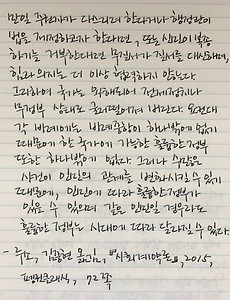 만일 주권자가 다스리려 한다거나 행정관이
법을 제정하고자 한다면, 또는 신민이 복종
하기를 거부한다면 무질서가 질서를 대신하며,
힘과 의지는 더 이상 협력하지 않는다
그리하여 국가는 와해되어 전제정치나
무정부 상태로 굴러떨어져 버린다. 요컨대
각 비례에는 비례중항이 하나밖에 없기
때문에 한 국가에 가능한 훌륭한 정부
또한 하나밖에 없다. 그러나 수많은
사건이 인민의 관계를 변화시킬 수 있기
때문에, 인민에 따라 훌륭한 정부가
있을 수 있으며 같은 인민일 경우라도
훌륭한 정부는 시대에 따라 달라질 수 있다.
- 루소, 김중현 옮김, 『사회계약론』, 2015,
펭귄클래식, 72쪽